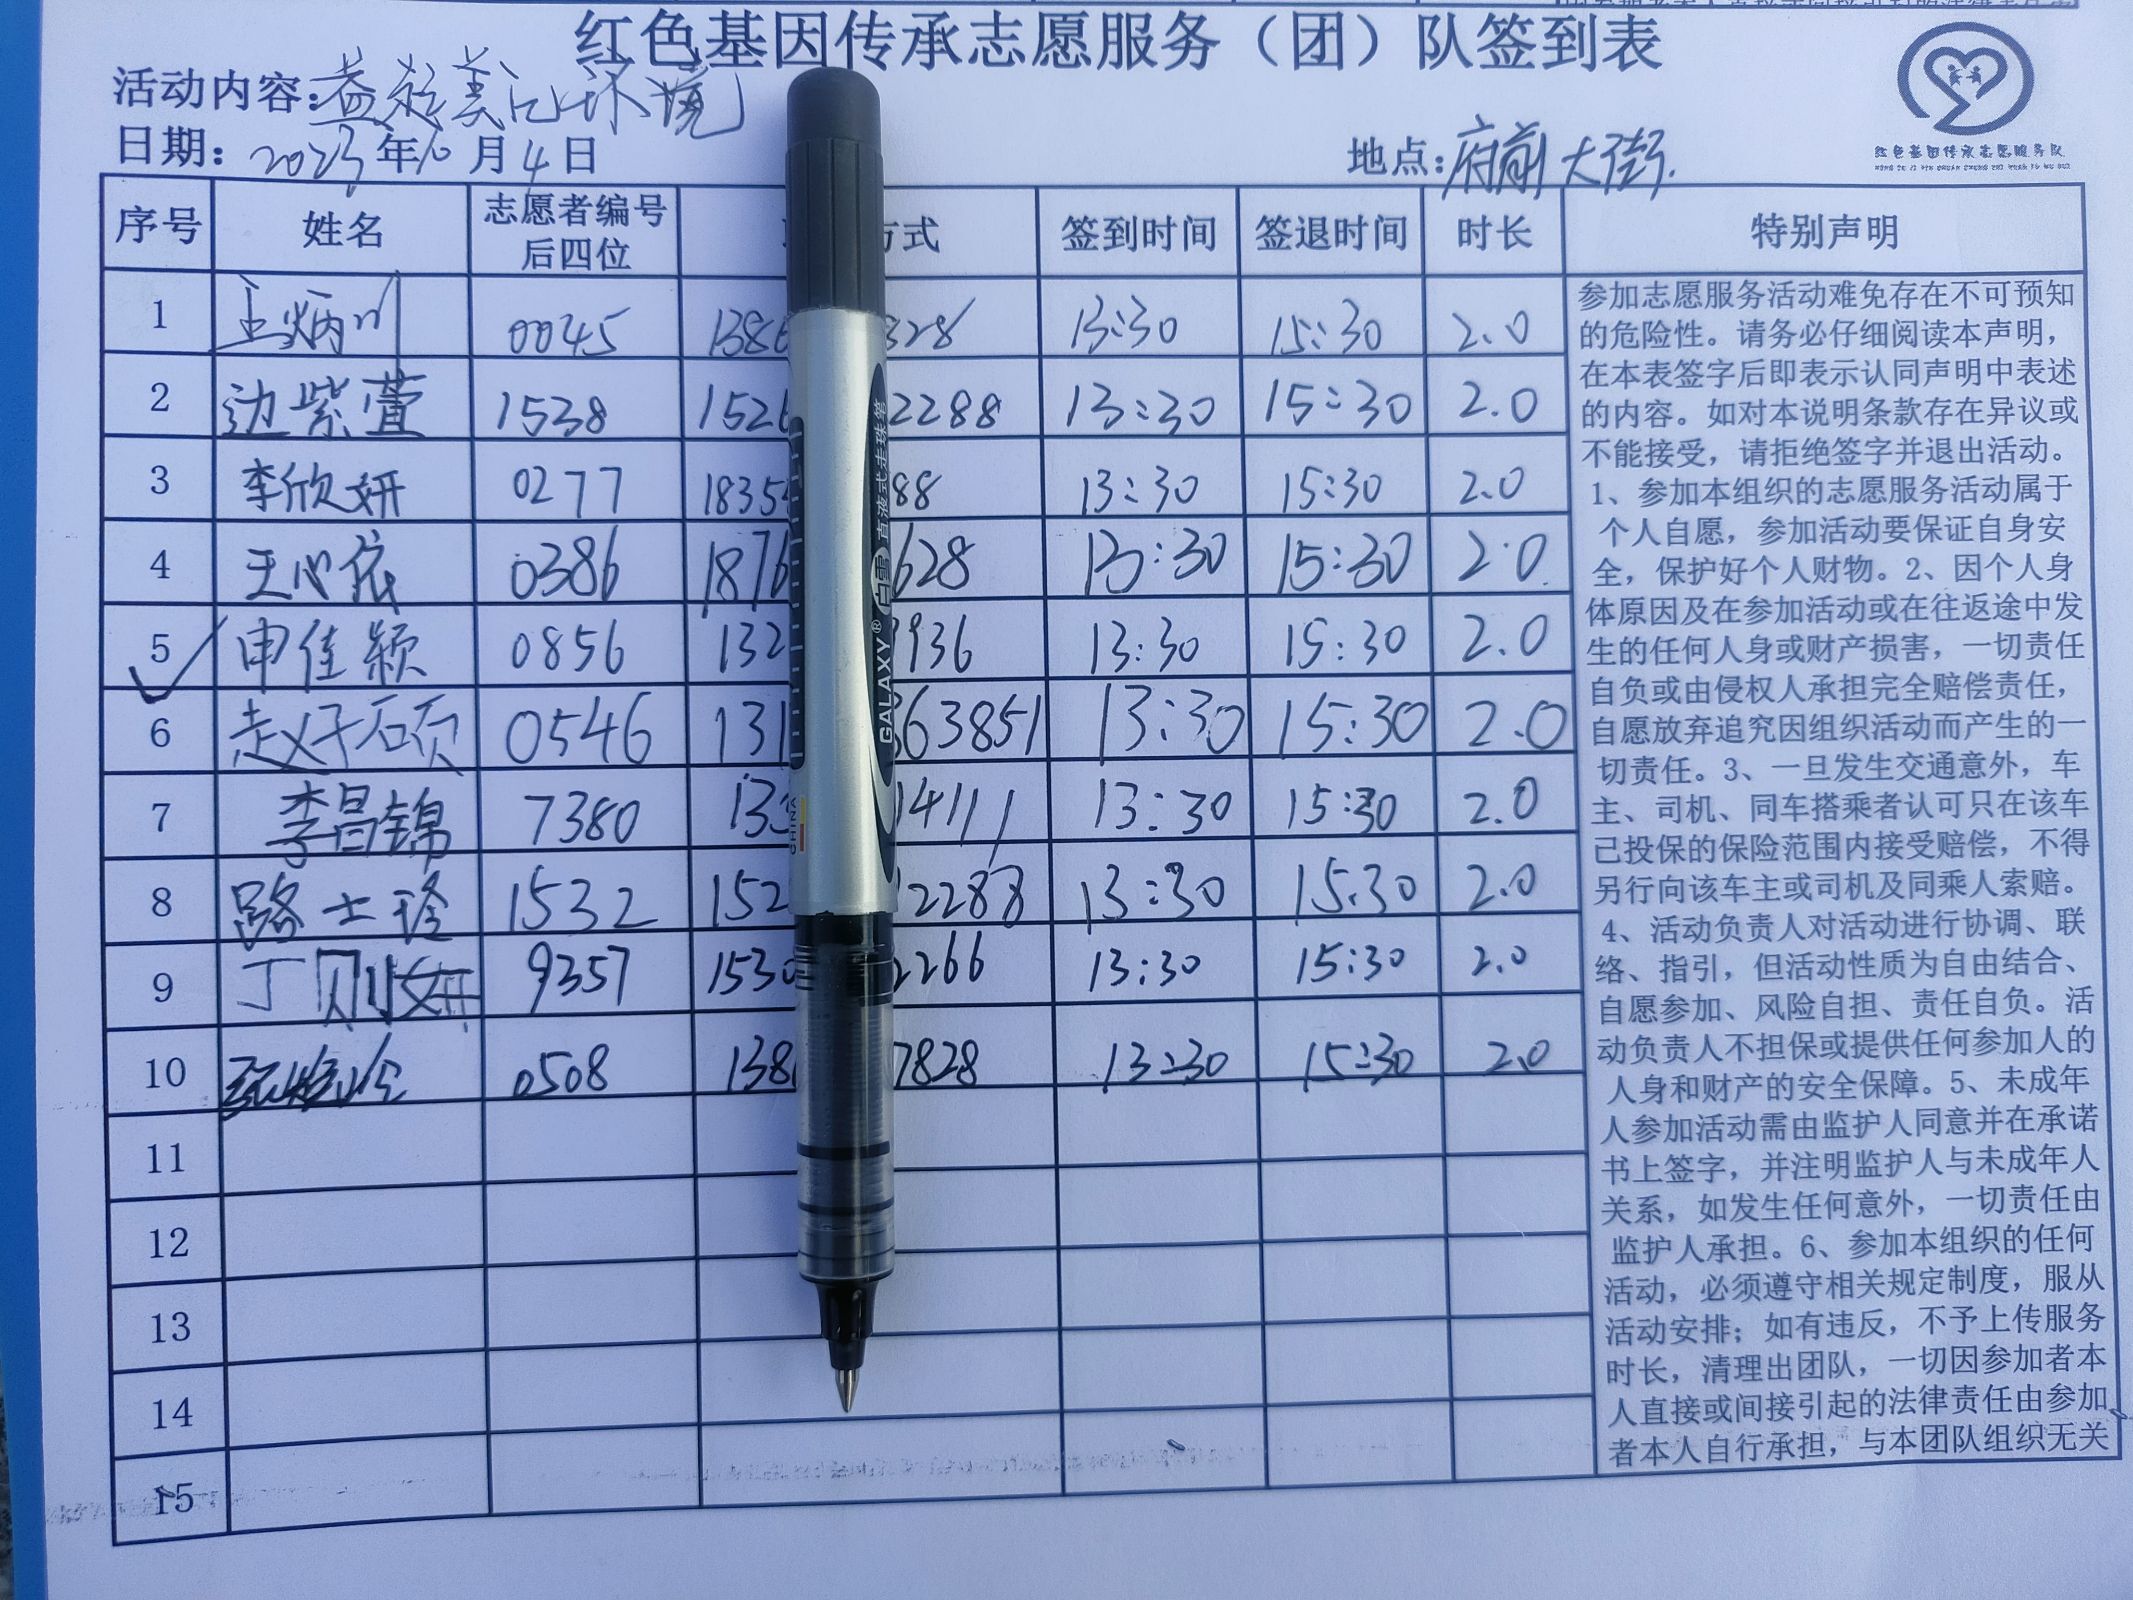 红色基因传承志愿服务（团）队签到表
活动内容：益起美化环境
日期：2023年10月4日 地点：府前大街.
红色基因传承志愿服务队
序号 姓名 志愿者编号后四位 方式 签到时间 签退时间 时长 特别声明
1 王炳川 0045 1386 328 13:30 15:30 2.0
2 边紫萱 1538 1526 2288 13:30 15:30 2.0
3 李欣妍 0277 1835 88 13:30 15:30 2.0
4 王心依 0386 1876 628 13:30 15:30 2.0
5 申佳颖 0856 132 936 13:30 15:30 2.0
6 赵子硕 0546 131 363851 13:30 15:30 2.0
7 李昌锦 7380 133 14111 13:30 15:30 2.0
8 路士 1532 152 2288 13:30 15:30 2.0
9 丁则妍 9357 1530 2266 13:30 15:30 2.0
10 0508 138 7828 13:30 15:30 2.0
11
12
13
14
15
参加志愿服务活动难免存在不可预知
的危险性。请务必仔细阅读本声明，
在本表签字后即表示认同声明中表述
的内容。如对本说明条款存在异议或
不能接受，请拒绝签字并退出活动。
1、参加本组织的志愿服务活动属于
个人自愿，参加活动要保证自身安
全，保护好个人财物。2、因个人身
体原因及在参加活动或在往返途中发
生的任何人身或财产损害，一切责任
自负或由侵权人承担完全赔偿责任，
自愿放弃追究因组织活动而产生的一
切责任。3、一旦发生交通意外，车
主、司机、同车搭乘者认可只在该车
已投保的保险范围内接受赔偿，不得
另行向该车主或司机及同乘人索赔。
4、活动负责人对活动进行协调、联
络、指引，但活动性质为自由结合、
自愿参加、风险自担、责任自负。活
动负责人不担保或提供任何参加人的
人身和财产的安全保障。5、未成年
人参加活动需由监护人同意并在承诺
书上签字，并注明监护人与未成年人
关系，如发生任何意外，一切责任由
监护人承担。6、参加本组织的任何
活动，必须遵守相关规定制度，服从
活动安排；如有违反，不予上传服务
时长，清理出团队，一切因参加者本
人直接或间接引起的法律责任由参加
者本人自行承担，与本团队组织无关
GALAXY® 白雪 直液式走珠笔
CHINA